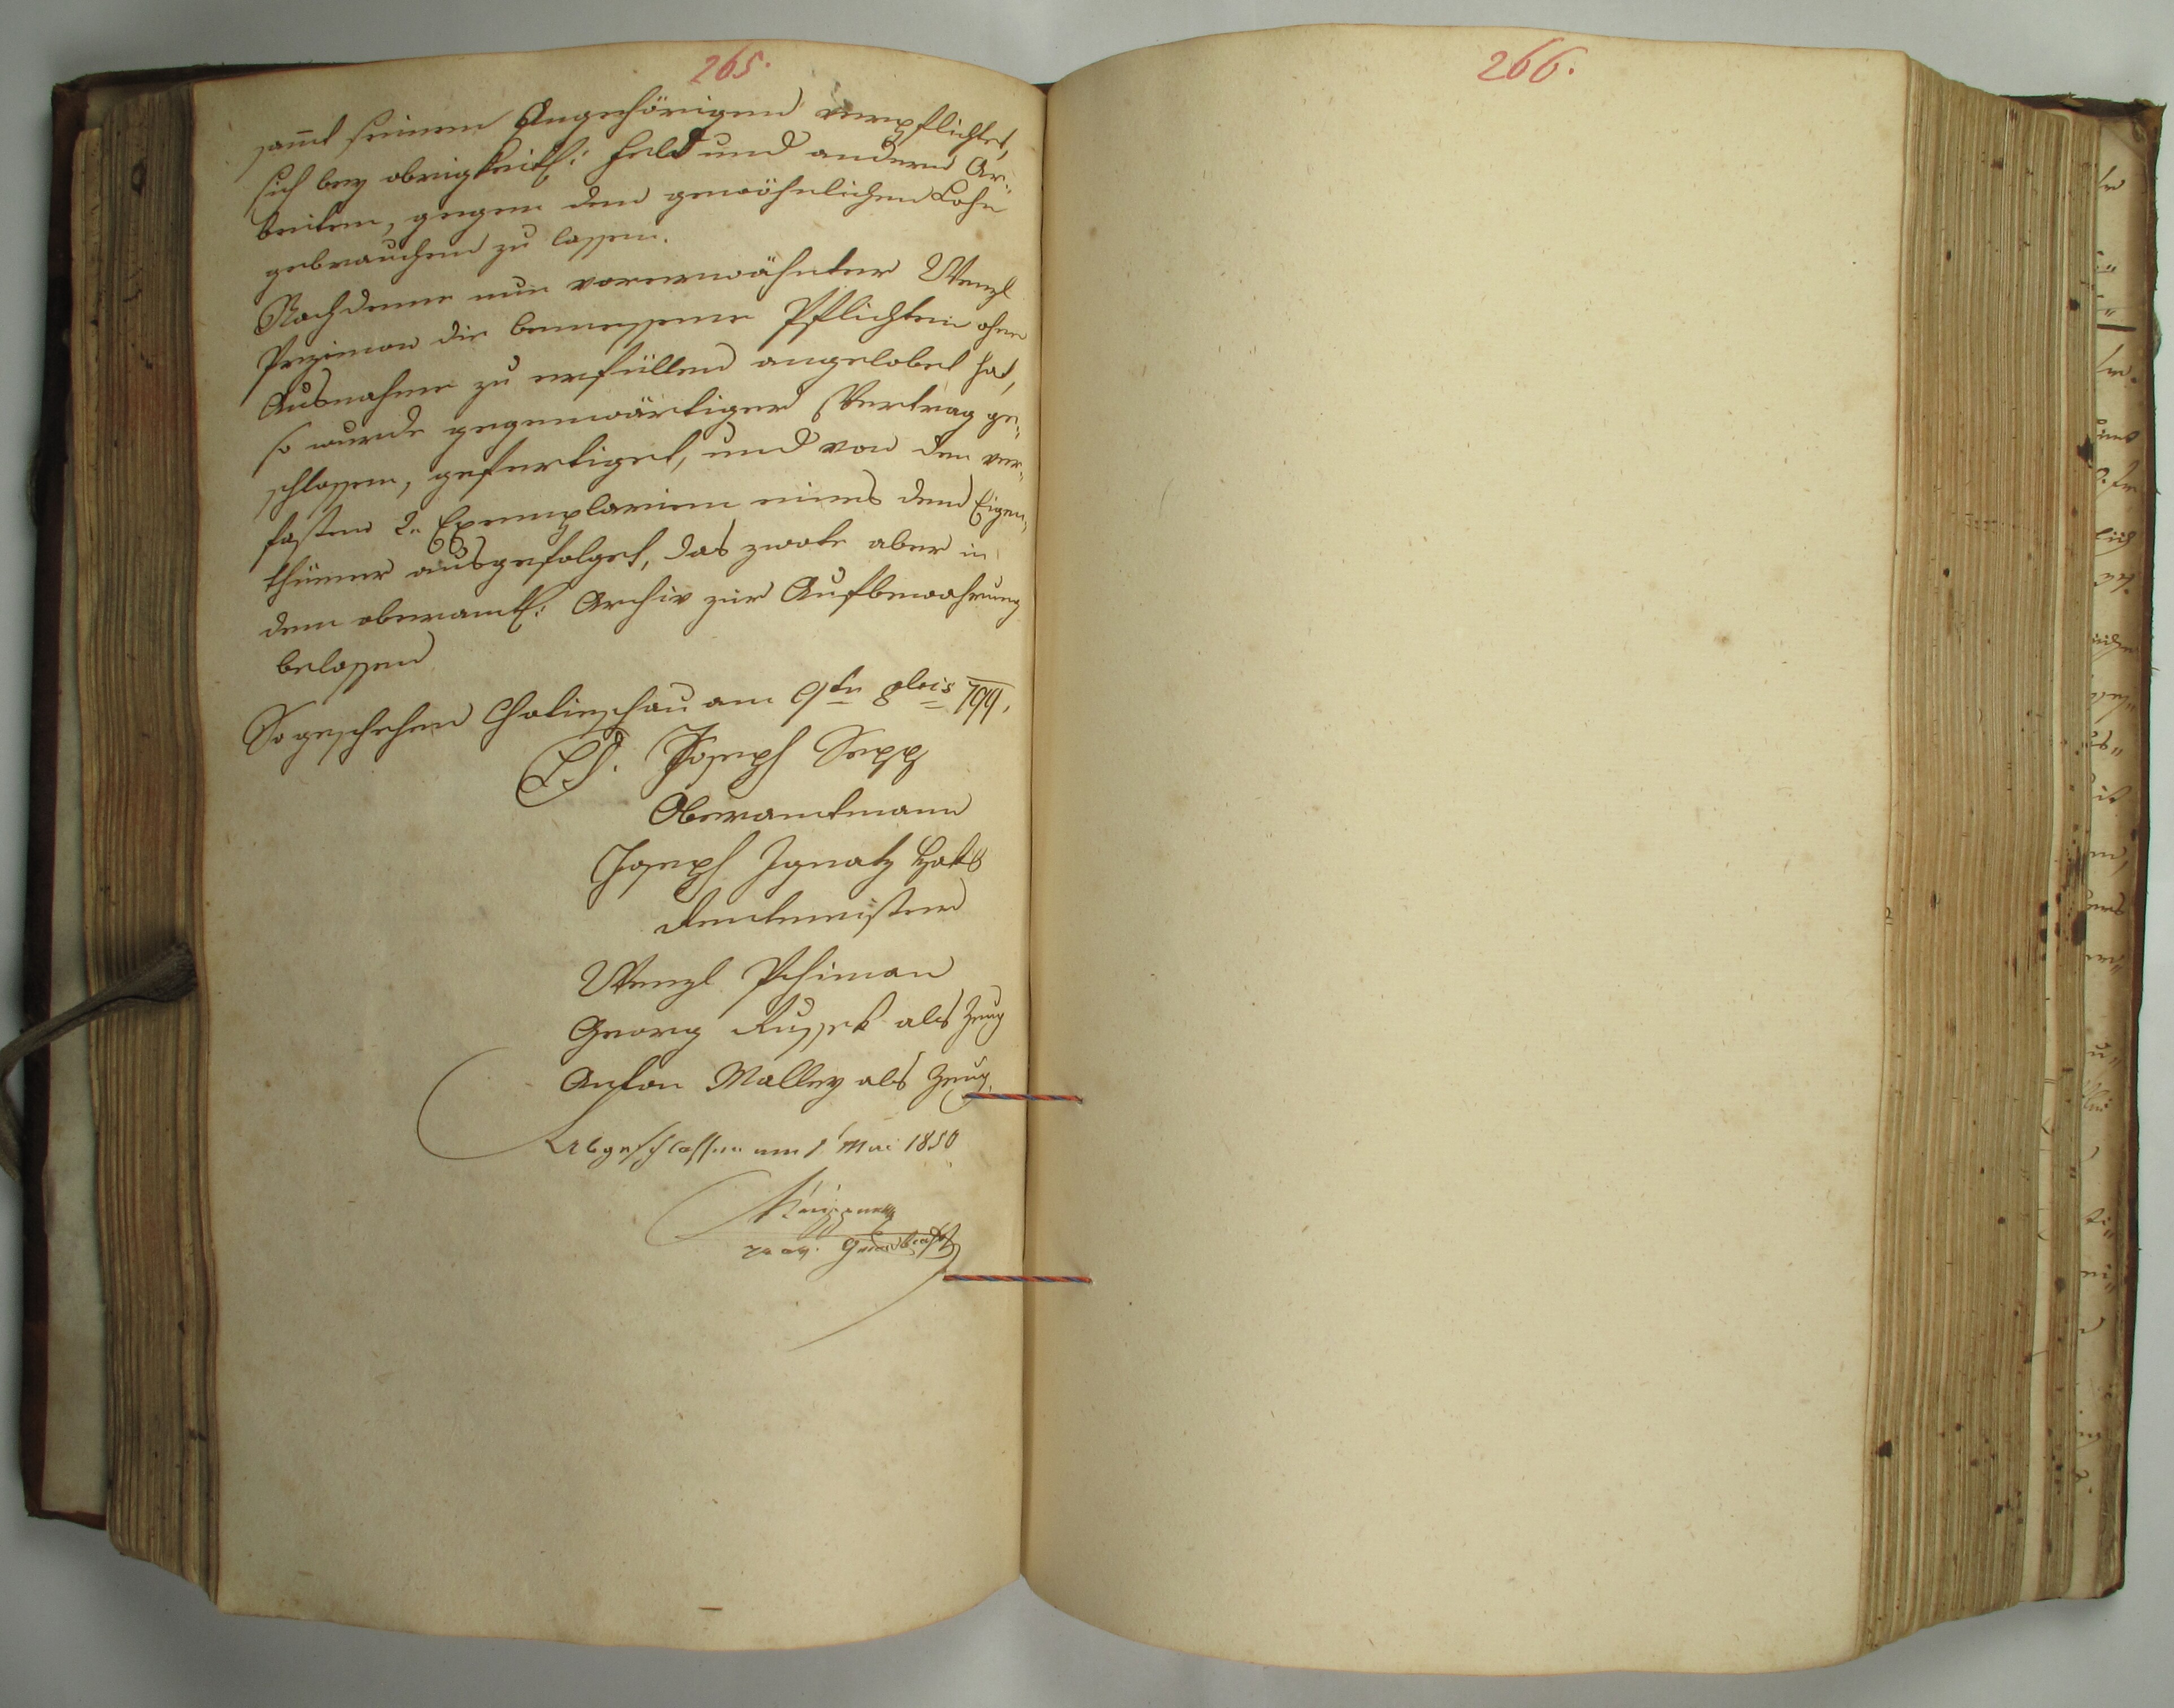 265.
sam̄t seinen Angehörigen verpflichtet,
sich bey obrigkeitl: Feld und andern Ar„
beiten, gegen den gewöhnlichen Lohn
gebrauchen zu lassen.
Nachdeme nun vorerwähnter Wenzl
die bemessene Pflichten ohne
Ausnahme zu erfüllen angelobet hat,
so wurde gegenwärtiger Vertrag ge„
schlossen, gefertiget, und von den ver„
fasten 2. Exemplarien eines dem Eigen„
thümer ausgefolget, das zwote aber in
dem oberamtl: Archiv zur Aufbewahrung
belassen
So geschehen Chotieschau am 9ten 8bris 799.
LS. Joseph Sepp
Oberamtmann
Joseph Ignatz
Rentmeister
Wenzl Pschiman
Georg Russek als Zeug
Anton Malley als Zeug.
Abgeschlossen am 1 Mai 1850
prov.
266.